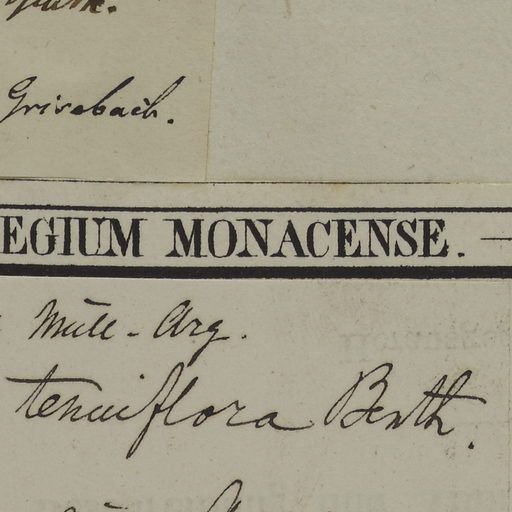 Grisebach.
EGIUM MONACENSE. —
Müll-Arg.
tenuiflora Benth.